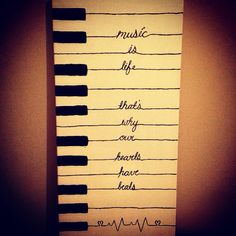 music
is
life
that's
why
our
hearts
have
beats